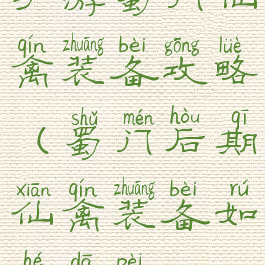 游 蜀 门 仙
qín zhuāng bèi gōng lüè
禽 装 备 攻 略
shǔ mén hòu qī
（ 蜀 门 后 期
xiān qín zhuāng bèi rú
仙 禽 装 备 如
hé dā pèi